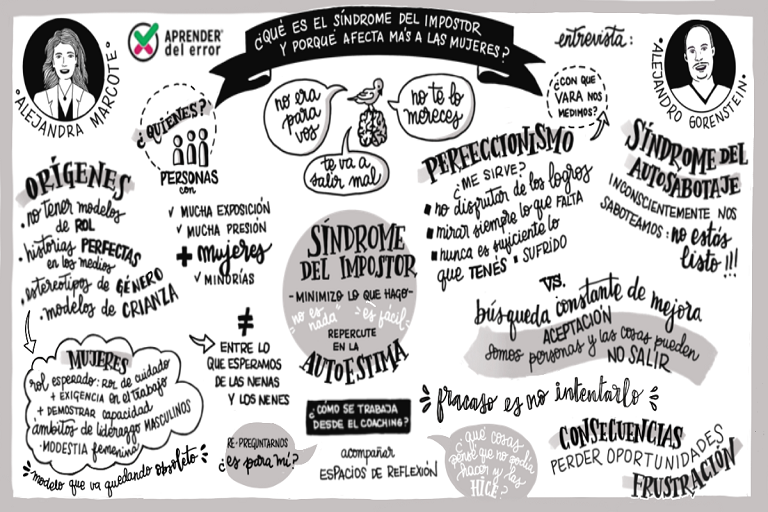 ¿QUÉ ES EL SÍNDROME DEL IMPOSTOR
Y PORQUÉ AFECTA MÁS A LAS MUJERES?
APRENDER
del error
ALEJANDRA MARCOTE
entrevista:
ALEJANDRO GORENSTEIN
¿QUIÉNES?
PERSONAS
con
✓ MUCHA EXPOSICIÓN
✓ MUCHA PRESIÓN
+ mujeres
✓ MINORÍAS
no era
para
vos
no te lo
mereces
te va a
salir mal
¿CON QUE
VARA NOS
MEDIMOS?
ORÍGENES
• no tener modelos
de ROL
• historias PERFECTAS
en los medios
• estereotipos de GÉNERO
• modelos de CRIANZA
MUJERES
rol esperado: rol de cuidado
+ EXIGENCIA en el trabajo
+ DEMOSTRAR capacidad
ámbitos de liderazgo MASCULINOS
• MODESTIA femenina
"modelo que va quedando obsoleto"
≠
ENTRE LO
QUE ESPERAMOS
DE LAS NENAS
Y LOS NENES
SÍNDROME
DEL IMPOSTOR
- MINIMIZO LO QUE HAGO -
"no es
nada"
"es fácil"
REPERCUTE
EN LA
AUTOESTIMA
PERFECCIONISMO
¿ME SIRVE?
▪ no disfrutar de los logros
▪ mirar siempre lo que FALTA
▪ nunca es suficiente lo
que TENÉS ▪ SUFRIDO
SÍNDROME DEL
AUTOSABOTAJE
INCONSCIENTEMENTE NOS
SABOTEAMOS: no estás
listo!!!
VS.
búsqueda constante de mejora
ACEPTACIÓN
somos personas y las cosas pueden
NO SALIR
"fracaso es no intentarlo"
¿CÓMO SE TRABAJA
DESDE EL COACHING?
RE-PREGUNTARNOS
¿es para mí?
acompañar
ESPACIOS DE REFLEXIÓN
¿qué cosas
pensé que no podía
hacer y las
HICE?
CONSECUENCIAS
PERDER OPORTUNIDADES
FRUSTRACIÓN